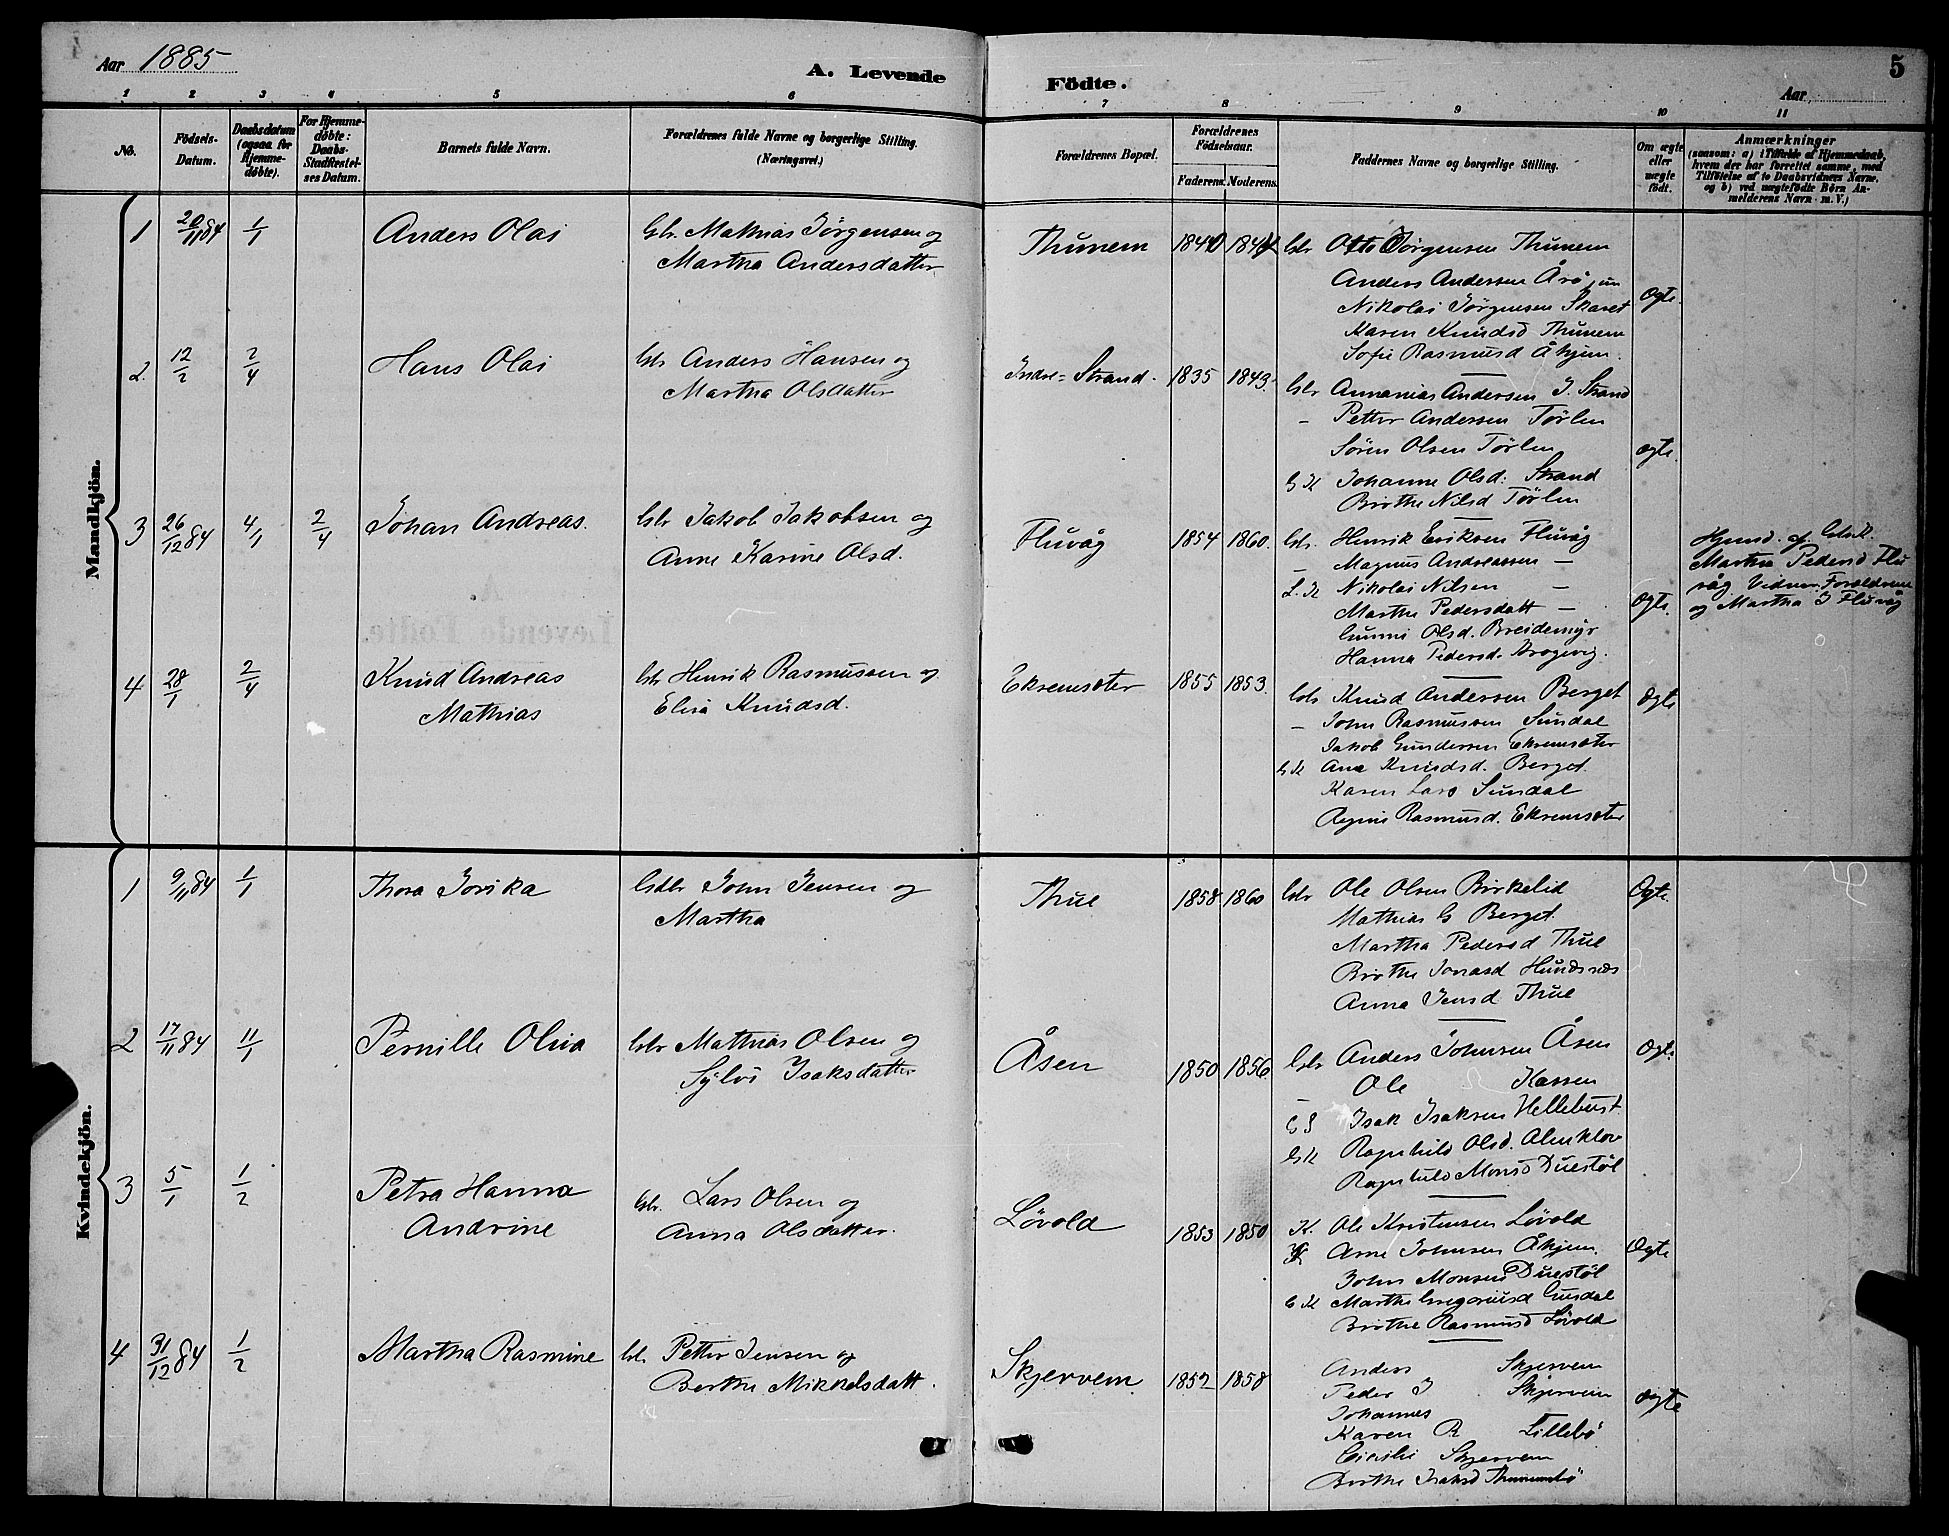 Aar 1885
A. Levende
Födte.
5
Aar
1 2 3 4 5 6 7 8 9 10 11
No.
Födsels-Datum.
Daabsdatum (ogsaa for Hjemme-döbte).
For Hjemme-döbte: Daabs-Stadfæstel-ses Datum.
Barnets fulde Navn.
Forældrenes fulde Navne og borgerlige Stilling. (Næringsvei.)
Forældrenes Bopæl.
Forældrenes Födselsaar.
Faderens. Moderens.
Faddernes Navne og borgerlige Stilling.
Om ægte eller uægte födt.
Anmærkninger
(saasom: a) i Tilfælde af Hjemmedaab, hvem der har forrettet samme, med Tilföielse af to Daabsvidners Navne, og b) ved uægtefödte Börn An-melderens Navn m. V.)
Mandkjön.
1 20/11 84 1/1 Anders Olai Gbr. Mathias Jørgensen og
Martha Andersdatter
Thunem 1840 1844 Gbr Otto Jørgensen Thunem
Anders Andersen Årø jun
Nikolai Jørgensen Skaret
Karen Knudsd Thunem
Sofie Rasmusd Åhjem.
Ægte.
2. 12/2 2/4 Hans Olai Gbr Anders Hansen og
Martha Olsdatter
Indre=Strand. 1835 1843. Gbr Annanias Andersen I. Strand
– Petter Andersen Tørlen
Søren Olsen Tørlen
G K Johanne Olsd: Strand
Birthe Nilsd Tørlen
ægte.
3 26/12 84 4/1 2/4 Johan Andreas. Gbr Jakob Jakobsen og
Anne Karine Olsd.
Fluvåg 1854 1860. Gbr. Henrik Eriksen Fluvåg
– Magnus Andreassen –
L. K Nikolai Nilsen –
Marthe Pedersdatt –
Gunni Olsd. Breidemyr
Hanna Pedersd.
Ægte.
Hjemd. af Gbrk.
Martha Pedersd Flu
våg Vidner: Forældrene
og Martha J Fluvåg
4 28/1 2/4 Knud Andreas
Mathias
Gbr Henrik Rasmussen og
Elisa Knudsd.
Ekremsæter 1855 1853. Gbr Knud Andersen Berget
– John Rasmussen Sundal
Jakob Gundersen Ekremsæter
G K Ane Knudsd. Berget
Karen Lars Sundal
Regine Rasmusd. Ekremsæter
Ægte
Kvindekjön.
1 9/11 84 1/1 Thora Jovika John Jensen og
Martha
Thue 1858 1860 Gbr Ole Olsen Birkelid
Mathias G Berget
Martha Pedersd Thue
Birthe Jonasd Hundsnes
Anna Jensd Thue
Ægte.
2 17/11 84 11/1 Pernille Oliva Gbr Mathias Olsen og
Sylvi Isaksdatter
Åsen 1850 1856 Gbr Anders Johnsen Åsen
Ole Kassen
G S Isak Isaksen Hellebust
Gk Ragnhild Olsd. Almklov
Ragnhild Monsd Duestøl
Ægte
3 5/1 1/2 Petra Hanna
Andrine
Gbr. Lars Olsen og
Anna Olsdatter.
Løvold 1853 1850 K. Ole Kristensen Løvold
Arne Johnsen Åhjem.
John Monsen Duestøl
G K Marthe Gregoriusd Gusdal
Birthe Rasmusd Løvold
Ægte
4 31/12 84 1/2 Martha Rasmine Gbr Petter Jensen og
Berthe Mikkelsdatt.
Skjervem 1852 1858 Anders Skjervem
Peder J Skjervem
Johannes
Karen R Lillebø
Skjervem
Birthe Isaksd Thunembø
ægte